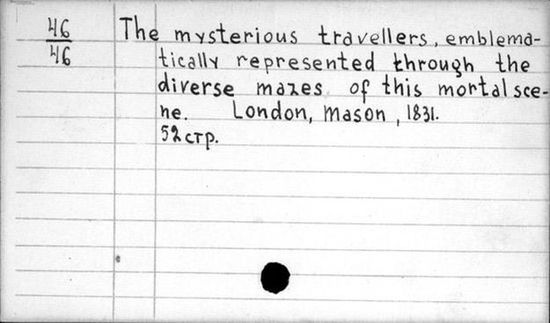 46
46
The mysterious travellers, emblema-
tically represented through the
diverse mazes of this mortal sce-
ne. London, Mason, 1831.
52 стр.